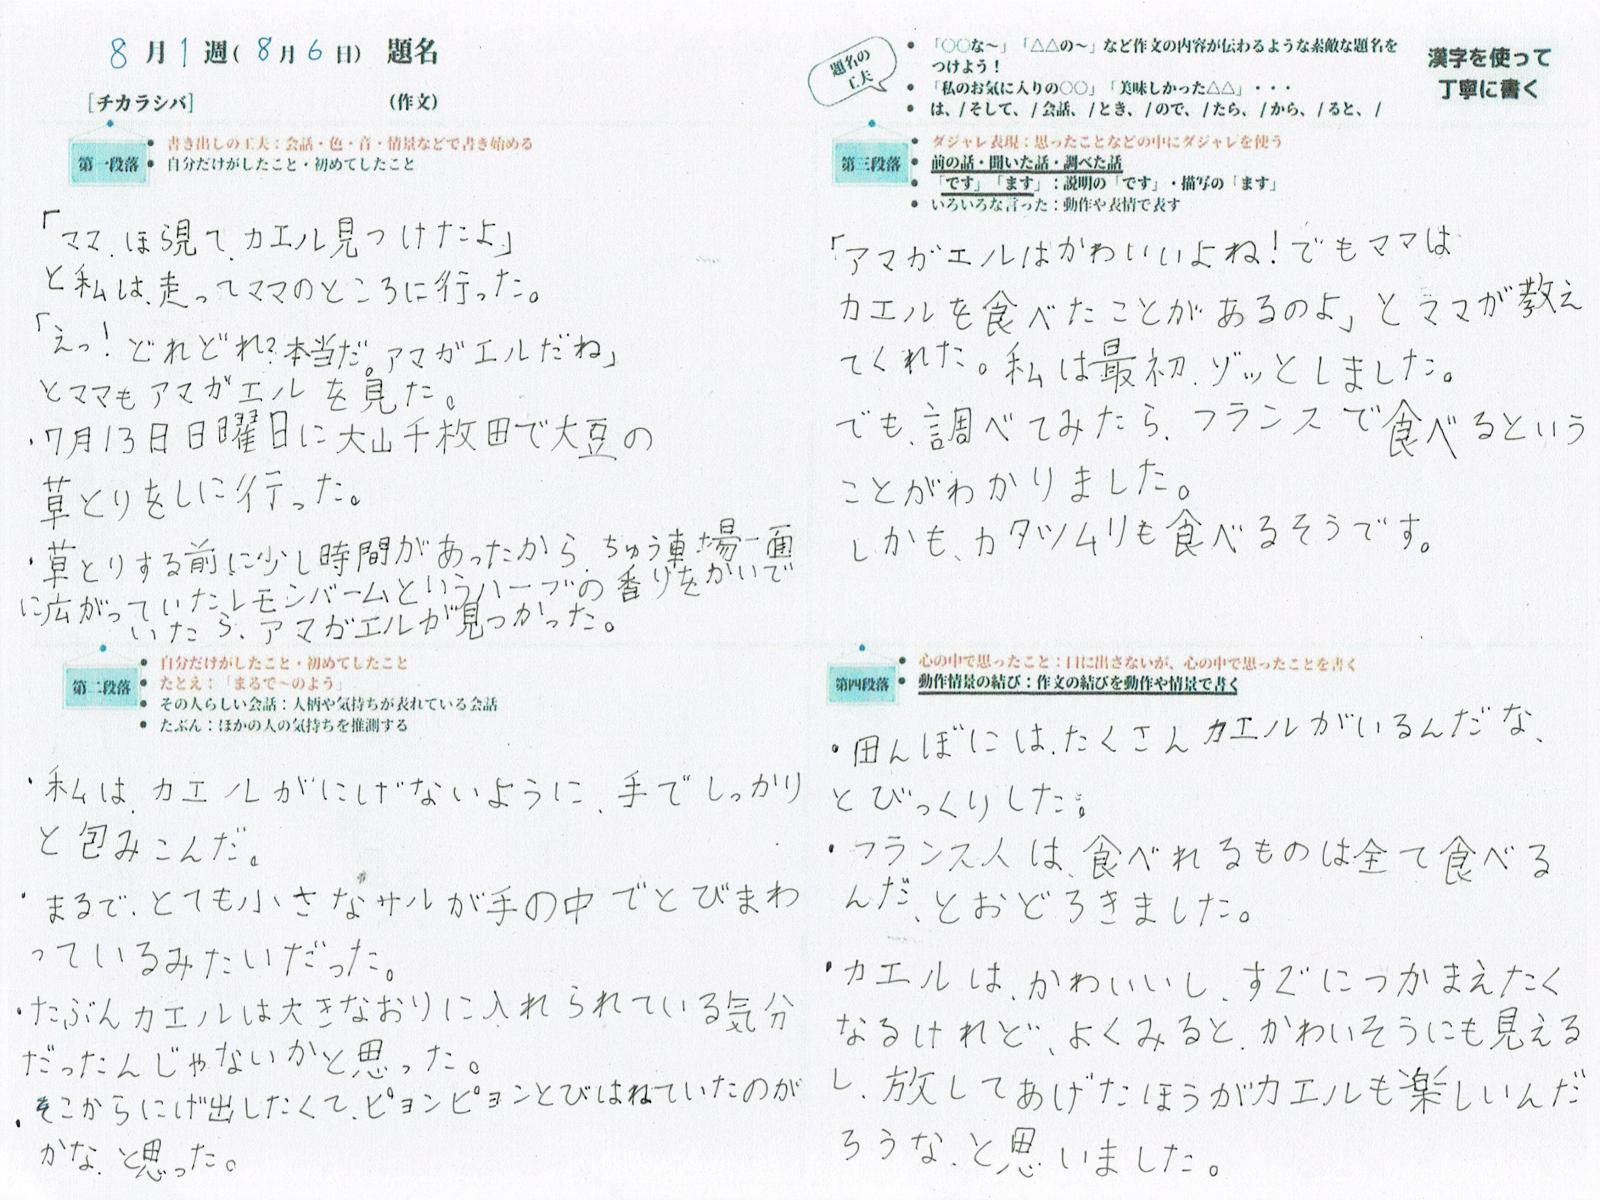 8月1週(8月6日) 題名
[チカラシバ] (作文)
題名の工夫
• 「○○な～」「△△の～」など作文の内容が伝わるような素敵な題名をつけよう！
• 「私のお気に入りの○○」「美味しかった△△」・・・
• は、/そして、/会話、/とき、/ので、/たら、/から、/ると、/
漢字を使って
丁寧に書く
第一段落
• 書き出しの工夫：会話・色・音・情景などで書き始める
• 自分だけがしたこと・初めてしたこと
「ママ、ほら見て、カエル見つけたよ」
と私は、走ってママのところに行った。
「えっ！どれどれ？本当だ。アマガエルだね」
とママもアマガエルを見た。
・7月13日日曜日に大山千枚田で大豆の
草とりをしに行った。
・草とりする前に少し時間があったから、ちゅう車場一面
に広がっていたレモンバームというハーブの香りをかいで
いたら、アマガエルが見つかった。
第二段落
• 自分だけがしたこと・初めてしたこと
• たとえ：「まるで～のよう」
• その人らしい会話：人柄や気持ちが表れている会話
• たぶん：ほかの人の気持ちを推測する
・私は、カエルがにげないように、手でしっかり
と包みこんだ。
・まるで、とても小さなサルが手の中でとびまわ
っているみたいだった。
・たぶんカエルは大きなおりに入れられている気分
だったんじゃないかと思った。
・そこからにげ出したくて、ピョンピョンとびはねていたのが
かな、と思った。
第三段落
• ダジャレ表現：思ったことなどの中にダジャレを使う
• 前の話・聞いた話・調べた話
• 「です」「ます」：説明の「です」・描写の「ます」
• いろいろな言った：動作や表情で表す
「アマガエルはかわいいよね！でもママは
カエルを食べたことがあるのよ」とママが教え
てくれた。私は最初、ゾッとしました。
でも、調べてみたら、フランスで食べるという
ことがわかりました。
しかも、カタツムリも食べるそうです。
第四段落
• 心の中で思ったこと：口に出さないが、心の中で思ったことを書く
• 動作情景の結び：作文の結びを動作や情景で書く
・田んぼには、たくさんカエルがいるんだな、
とびっくりした。
・フランス人は、食べれるものは全て食べる
んだ、とおどろきました。
・カエルは、かわいいし、すぐにつかまえたく
なるけれど、よくみると、かわいそうにも見える
し、放してあげたほうがカエルも楽しいんだ
ろうな、と思いました。